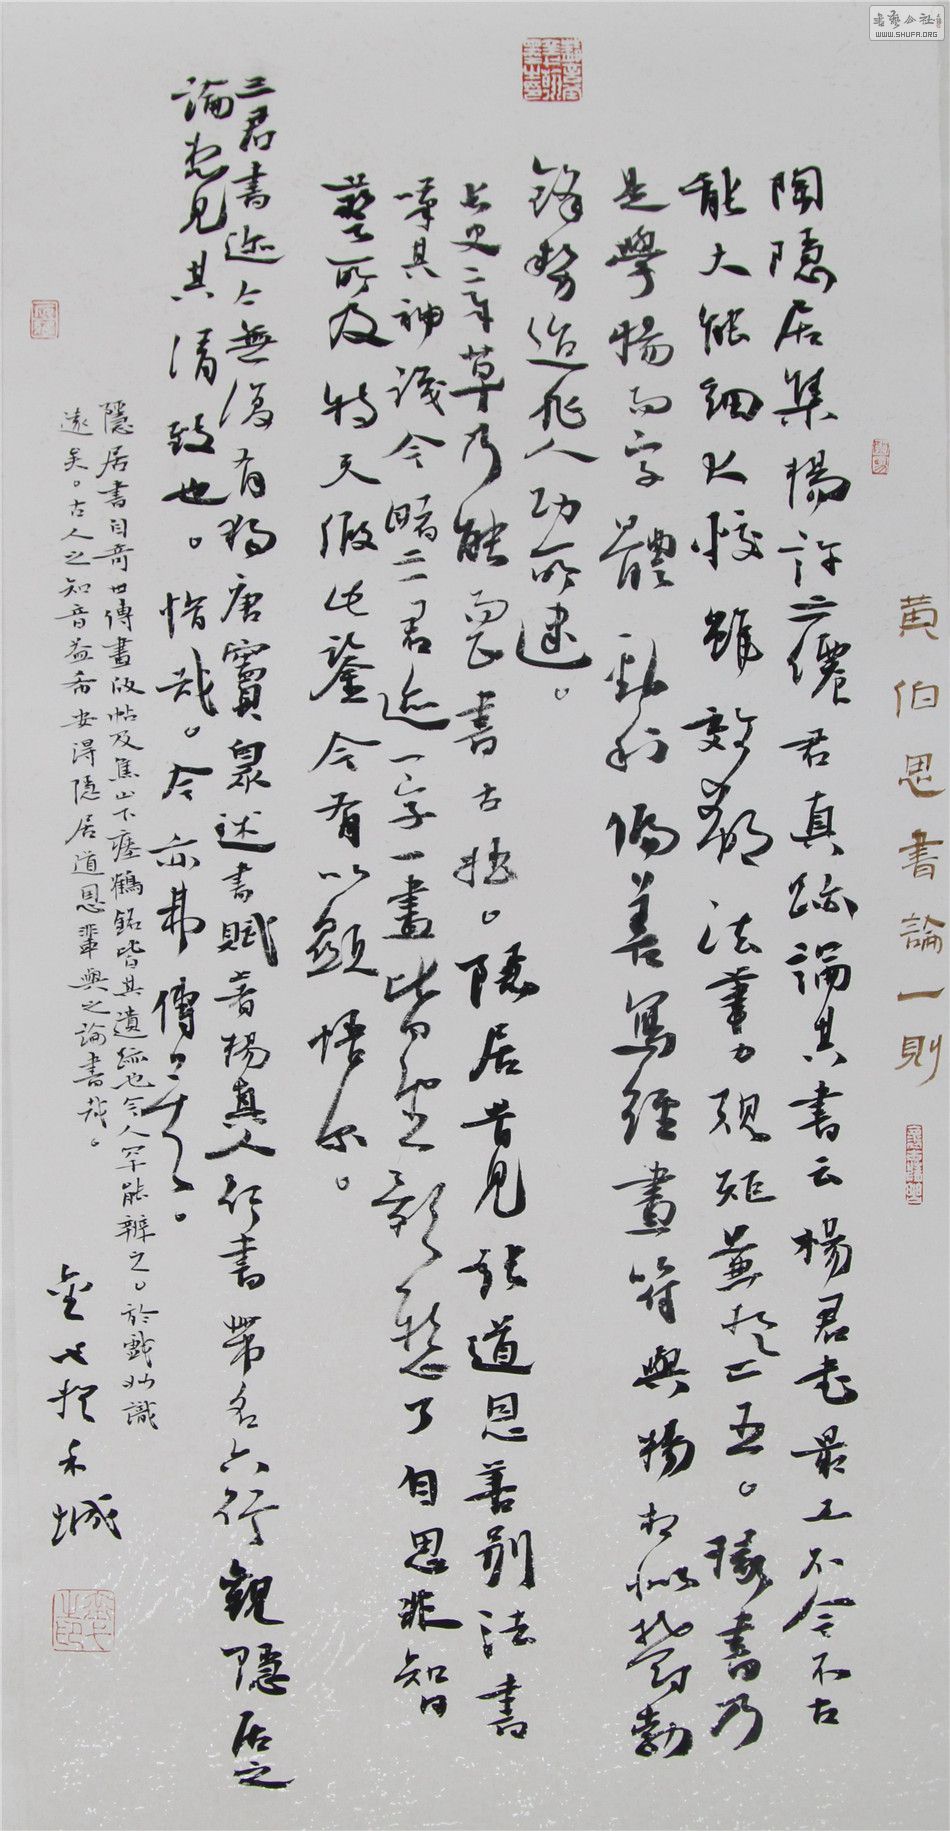 黄伯思書論一則
陶隱居集楊許三僊君真跡論其書云楊君書最工不今不古
能大能細大較雖效郗法筆力規矩兼於二王。掾書乃
是學楊而字體勁利偏善寫經畫符與楊相似鬱勃
鋒勢迨非人功所逮。
長史章草乃能而正書古拙。隱居昔見張道恩善別法書
嘆其神識今睹三君迹一字一畫皆望影懸了自思非智
藝所及特天假此鑒令有以顯悟爾。
三君書迹今無復有獨唐竇臮述書賦著楊真人行書帶名六行觀隱居之
論想見其清致也。惜哉。今亦弗傳矣。
隱居書自奇世傳畫版帖及焦山下瘞鶴銘皆其遺跡也今人罕能辨之。於戲此識
遠矣。古人之知音益希安得隱居道恩輩與之論書哉。